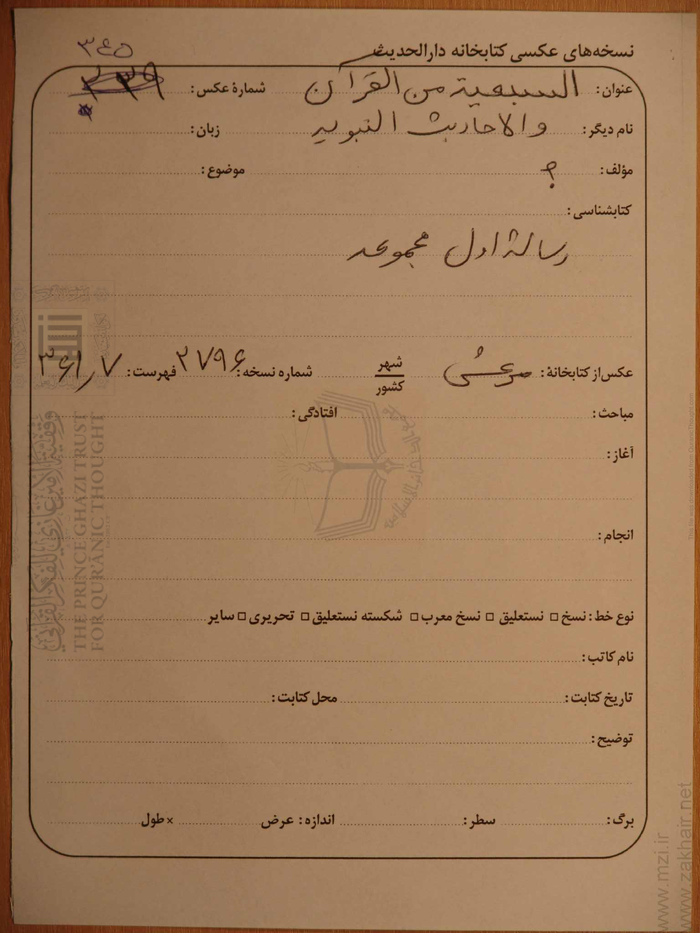 نسخه‌های عکسی کتابخانه دارالحدیث
۳۶۵
عنوان: السبعیة من القرآن شمارۀ عکس: ۳۳۹
نام دیگر: والاحادیث النبویه زبان:
مؤلف: ؟ موضوع:
کتابشناسی:
رسالۀ اول مجموعه
عکس از کتابخانۀ: مرعشی شهر کشور شماره نسخه: ۲۷۹۶ فهرست: ۳۶۱٫۷
مباحث: افتادگی:
آغاز:
انجام:
نوع خط: نسخ □ نستعلیق □ نسخ معرب □ شکسته نستعلیق □ تحریری □ سایر
نام کاتب:
تاریخ کتابت: محل کتابت:
توضیح:
برگ: سطر: اندازه: عرض × طول
وقفية الأمير غازي للفكر القرآني
THE PRINCE GHAZI TRUST
FOR QUR'ANIC THOUGHT
www.mzi.ir
www.zakhair.net